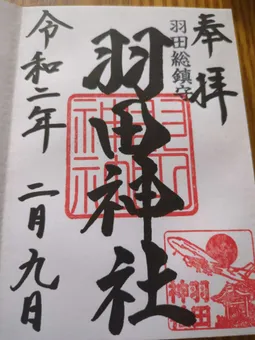 奉拝
羽田総鎮守
羽田神社
令和二年 二月九日
羽田神社
羽田
神社